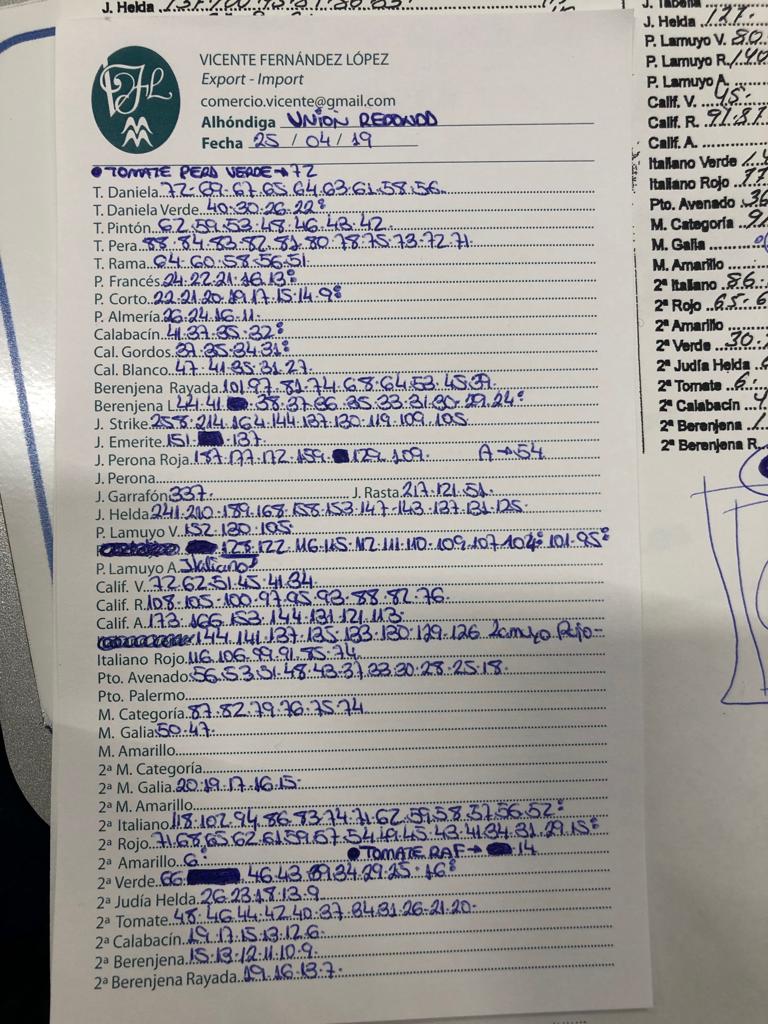 J. Helda
VICENTE FERNÁNDEZ LÓPEZ
Export - Import
comercio.vicente@gmail.com
Alhóndiga UNION REDONDO
Fecha 25 / 04 / 19
• TOMATE PERA VERDE → 72
T. Daniela 72-69-67-65-64-63-61-58-56
T. Daniela Verde 40-30-26-22
T. Pintón 62-59-53-48-46-43-42
T. Pera 88-84-83-82-81-80-78-75-73-72-71
T. Rama 64-60-58-56-51
P. Francés 24-22-21-16-13
P. Corto 22-21-20-19-17-15-14-9
P. Almería 26-24-16-11
Calabacín 41-37-35-32
Cal. Gordos 39-35-34-31
Cal. Blanco 47-41-35-31-27
Berenjena Rayada 101-97-81-74-68-64-53-45-39
Berenjena L 44-41 38-37-36-35-33-31-30-29-24
J. Strike 258-214-164-144-137-130-119-109-105
J. Emerite 151- 137
J. Perona Roja 187-177-172-159 129-109 A → 54
J. Perona
J. Garrafón 337 J. Rasta 217-121-51
J. Helda 241-210-189-168-158-153-147-143-137-131-125
P. Lamuyo V. 152-130-105
128-122-116-115-112-111-110-109-107-102-101-95
P. Lamuyo A. Italiano
Calif. V. 72-62-51-45-41-34
Calif. R. 108-105-100-97-95-93-88-82-76
Calif. A. 173-166-153-144-131-121-113
144-141-137-135-133-130-129-126 Lamuyo Rojo
Italiano Rojo 116-106-99-91-85-74
Pto. Avenado 56-53-51-48-43-37-33-30-28-25-18
Pto. Palermo
M. Categoría 87-82-79-76-75-74
M. Galia 50-47
M. Amarillo
2ª M. Categoría
2ª M. Galia 20-19-17-16-15
2ª M. Amarillo
2ª Italiano 118-102-94-86-83-74-71-62-59-58-57-56-52
2ª Rojo 71-68-65-62-61-59-57-54-49-45-43-41-34-31-29-15
2ª Amarillo 6 • TOMATE RAF → 14
2ª Verde 66 46-43-39-34-29-25-16
2ª Judía Helda 26-23-18-13-9
2ª Tomate 48-46-44-42-40-37-34-31-26-21-20
2ª Calabacín 19-17-15-13-12-6
2ª Berenjena 15-13-12-11-10-9
2ª Berenjena Rayada 19-16-13-7
J. Tabella
J. Helda 127
P. Lamuyo V. 80
P. Lamuyo R. 140
P. Lamuyo A.
Calif. V. 45
Calif. R. 91-87
Calif. A.
Italiano Verde
Italiano Rojo 77
Pto. Avenado 36
M. Categoría
M. Galia
M. Amarillo
2ª Italiano 86
2ª Rojo 65-6
2ª Amarillo
2ª Verde 30
2ª Judía Helda
2ª Tomate 6
2ª Calabacín
2ª Berenjena
2ª Berenjena R.